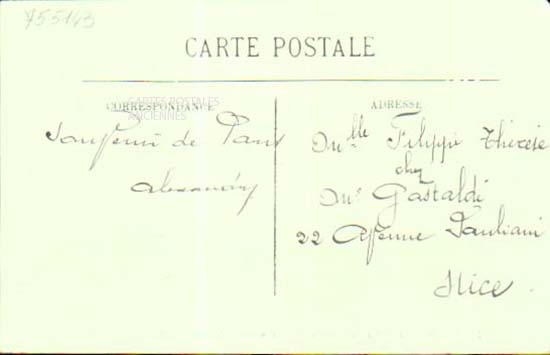 755143
CARTE POSTALE
CORRESPONDANCE
CARTES POSTALES
ANCIENNES
Souvenir de Paris
ADRESSE
Mlle Filippi Thérèse
chez
Mr Gastaldi
22 Avenue Pauliani
Nice